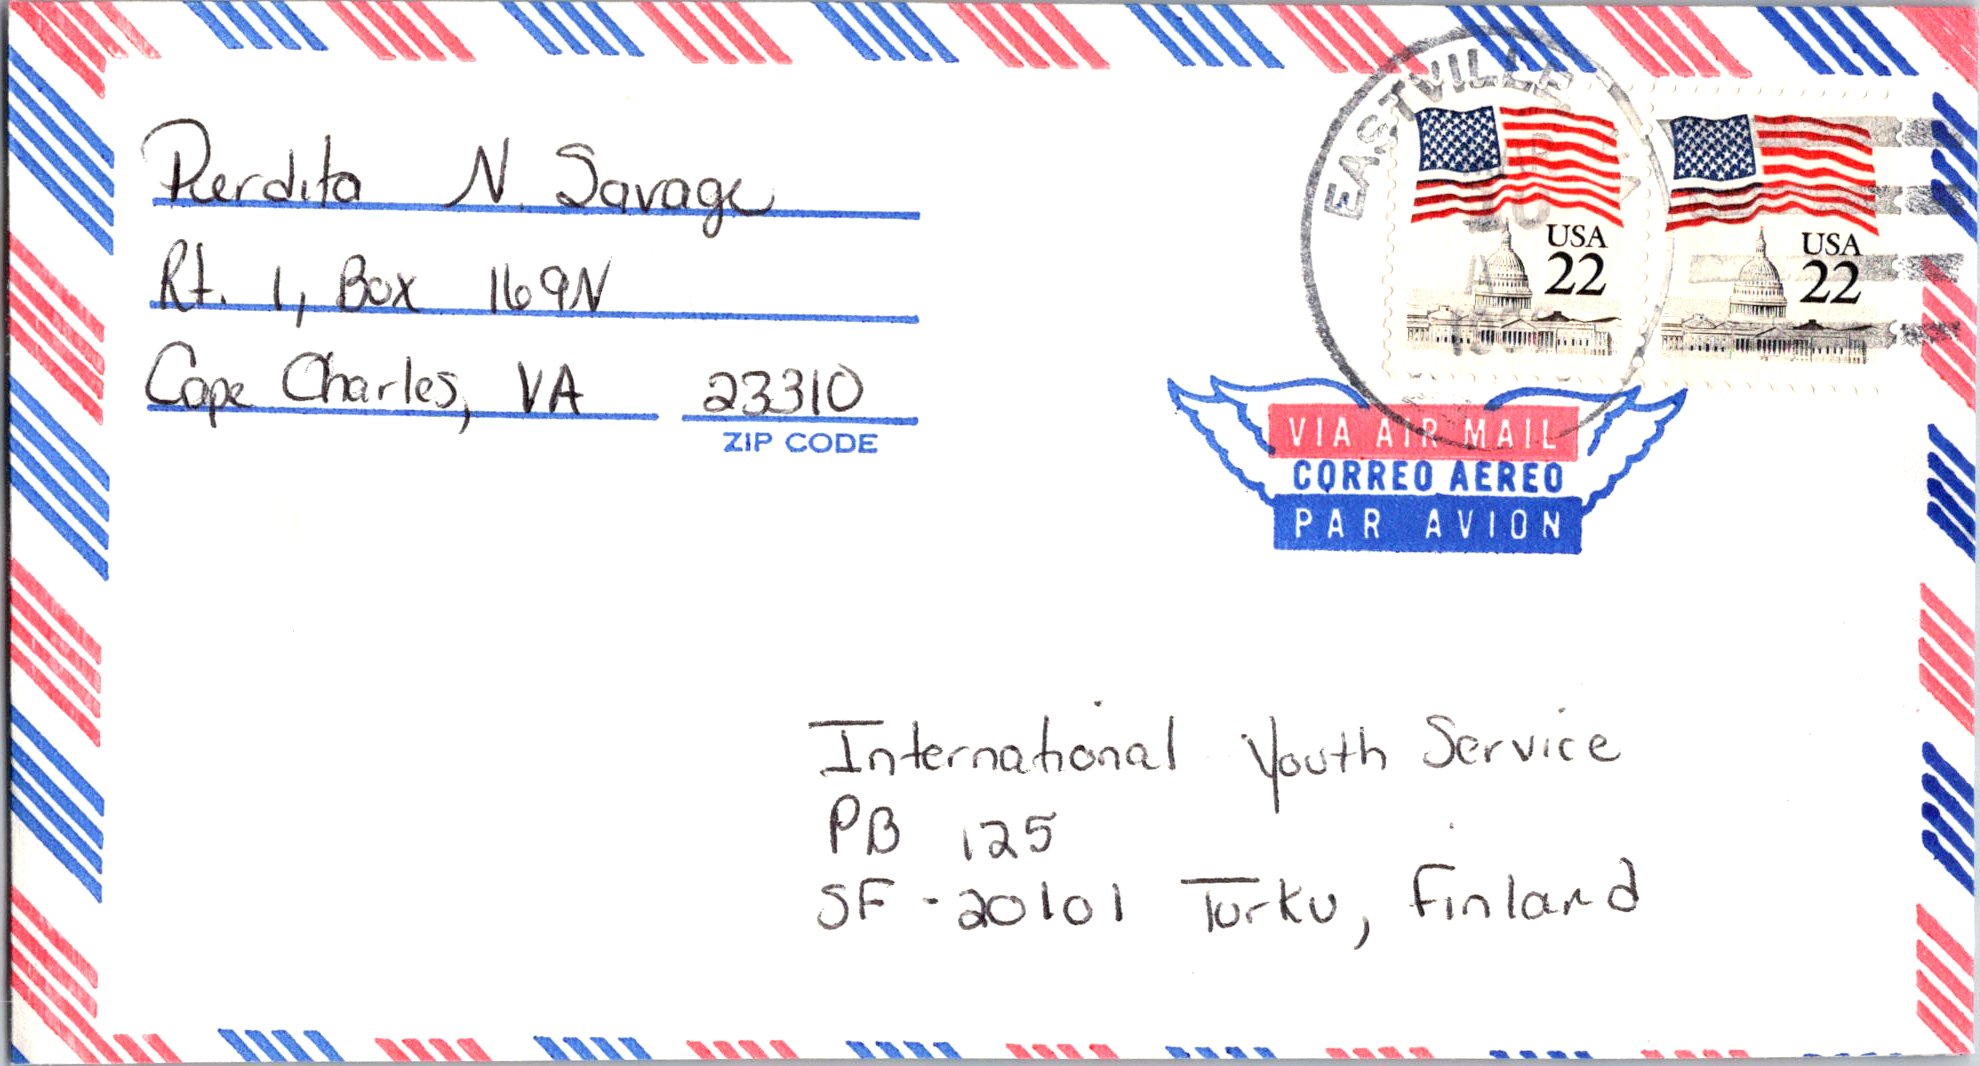 Perdita N. Savage
Rt. 1, Box 169N
Cape Charles, VA 23310
ZIP CODE
EASTVILLE
USA
22
USA
22
VIA AIR MAIL
CORREO AEREO
PAR AVION
International Youth Service
PB 125
SF-20101 Turku, Finland